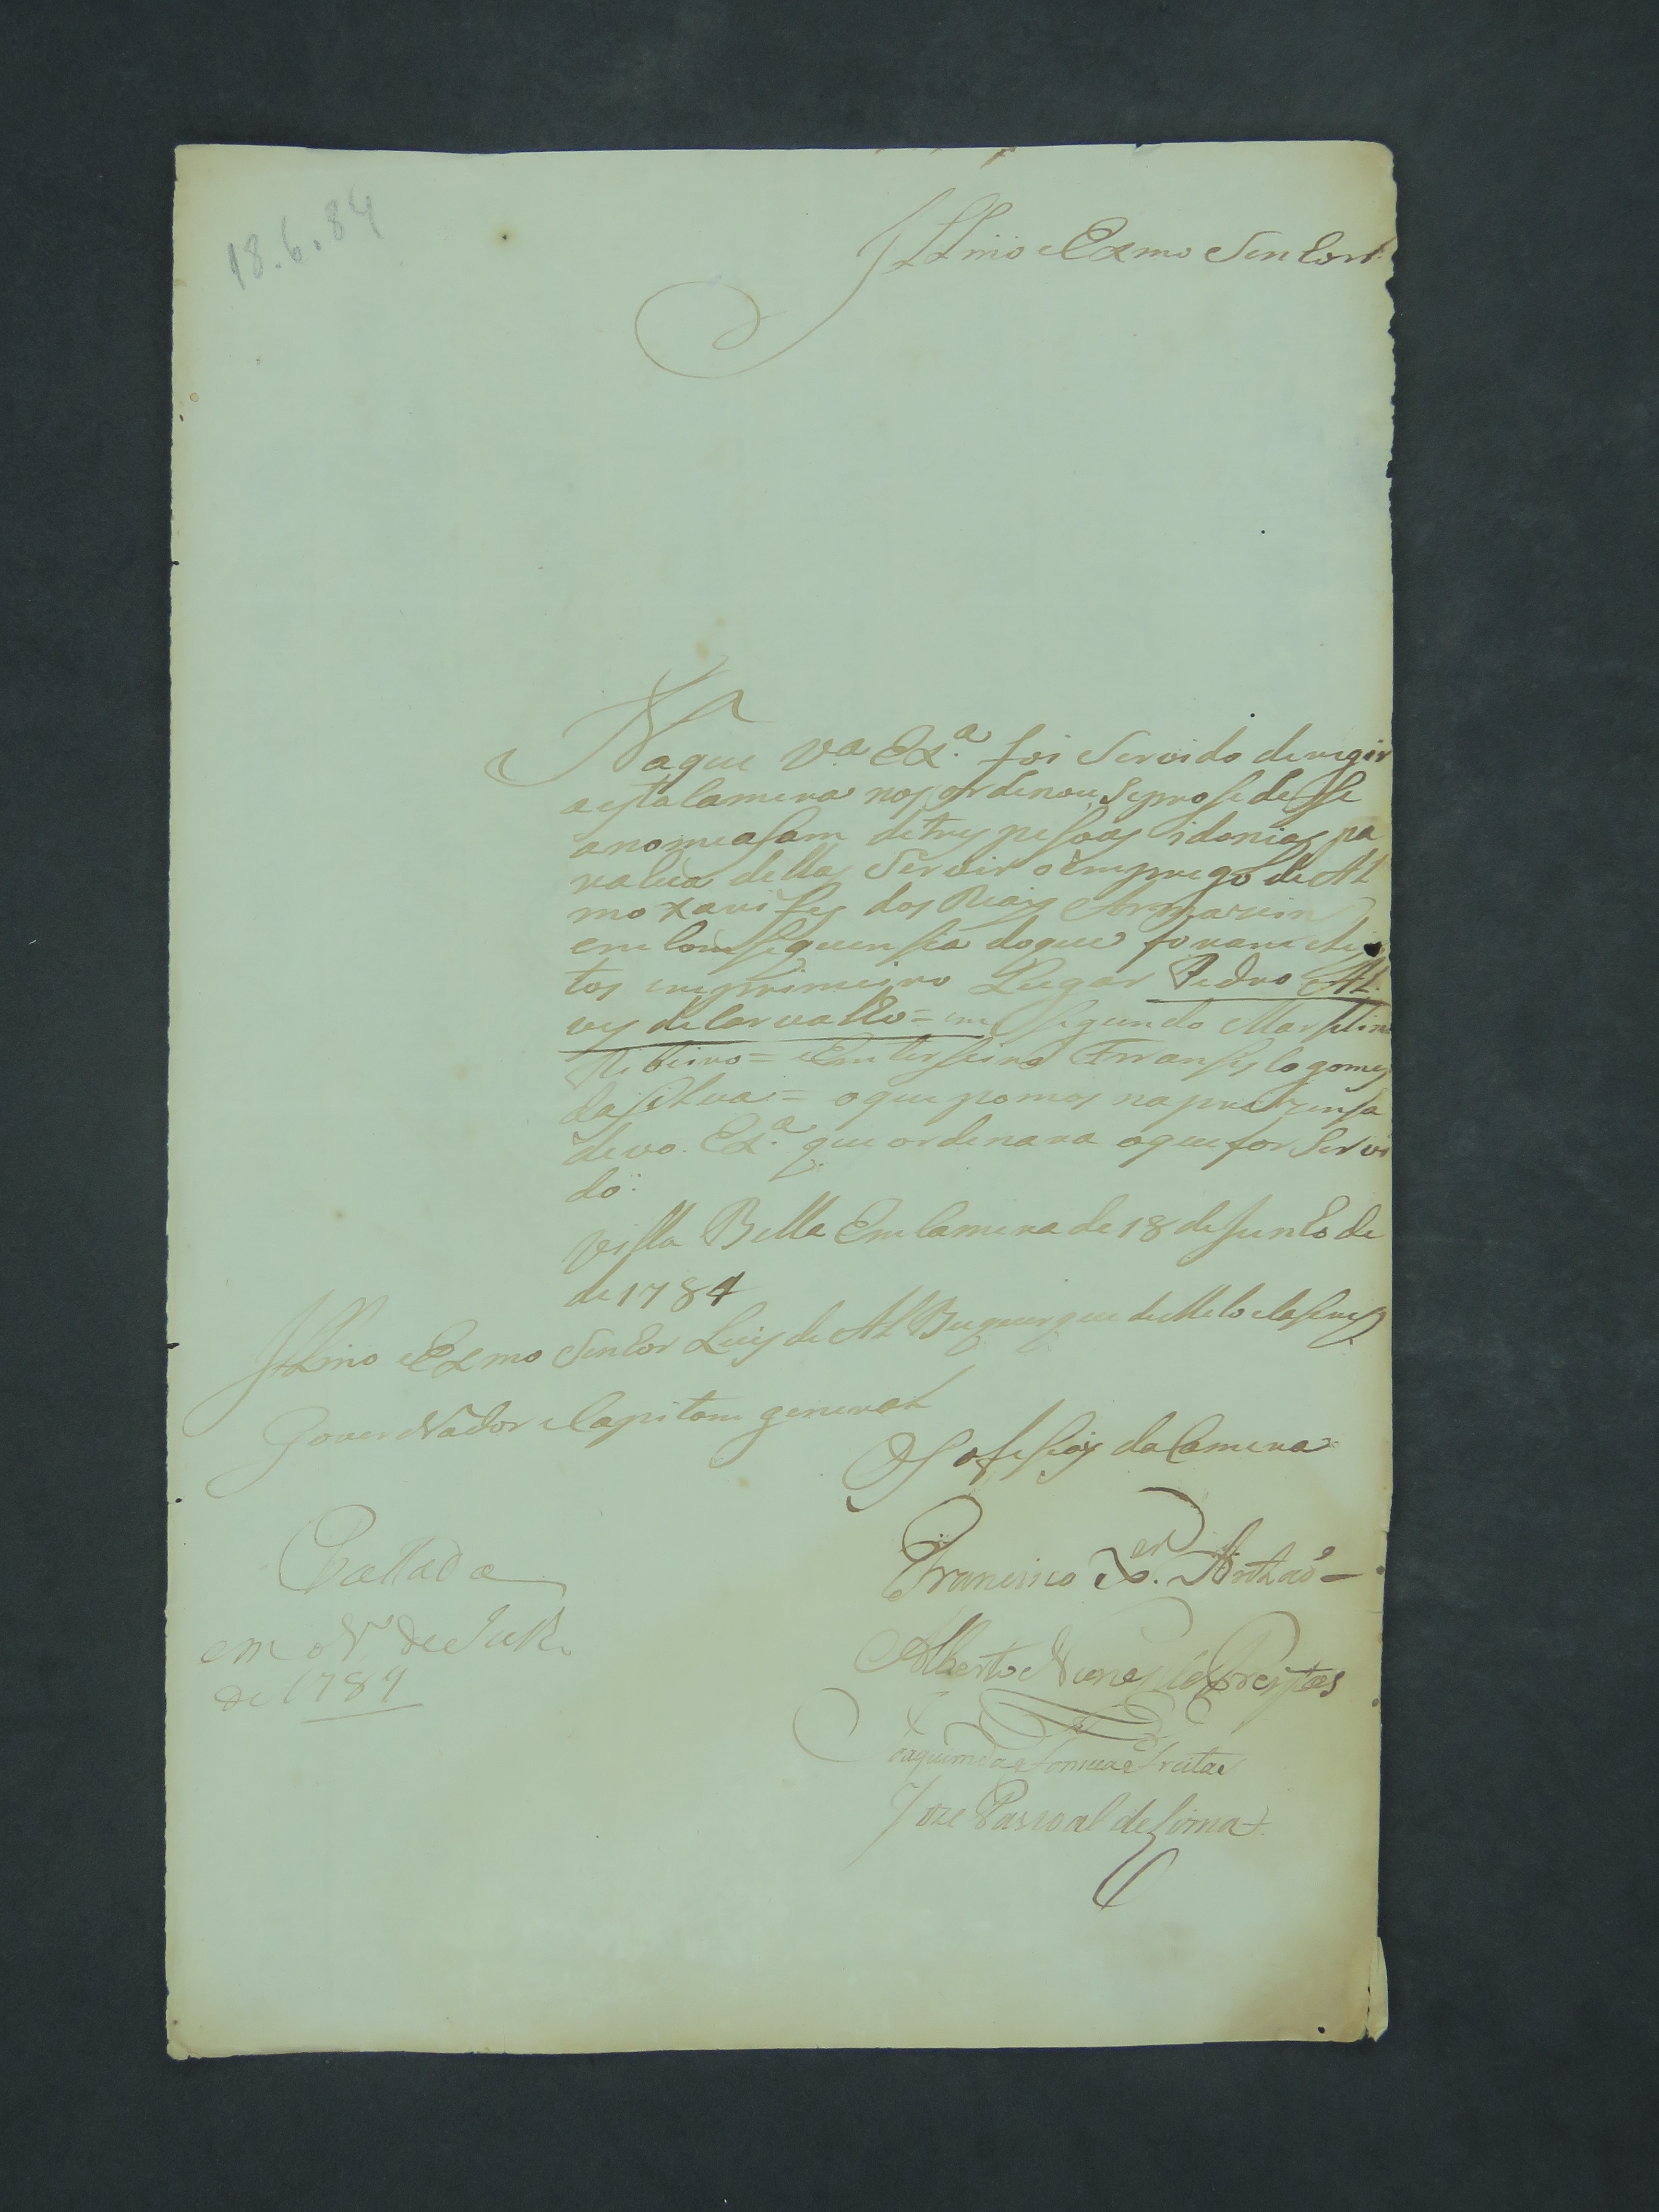 18.6.84
Illmo e Exmo Senhor
Naque V.a Ex.a foi Servido deregir
a esta Camera nos ordenou Se prosedesse
anomeasam detres pesoas idonias pa
ra cada dellas Servir o emprego de Al
moxarifes dos Reais Armazein
em Comsequensia doque foram elei
tos emprimeiro Lugar Pedro Al
ves de Carvalho = em segundo Marselino
Ribeiro = Em terseiro Fransisco gomes
da Silva = oque pomos na prezensa
de vo. Ex.a que ordenara oque for Servi
do.
Villa Bella Em Camera de 18 de Junho de
de 1784
Illmo e Exmo Senhor Luis de Al Buquerque de Melo e Caseres
Governador e Capitam general
Os ofisiais da Camera
Francisco X.er Antháo
Alberto Nunes de Freytas
Joaquim da Fonseca e Freitas
Joze Pascoal de Lima
em de Julh.
de 1784